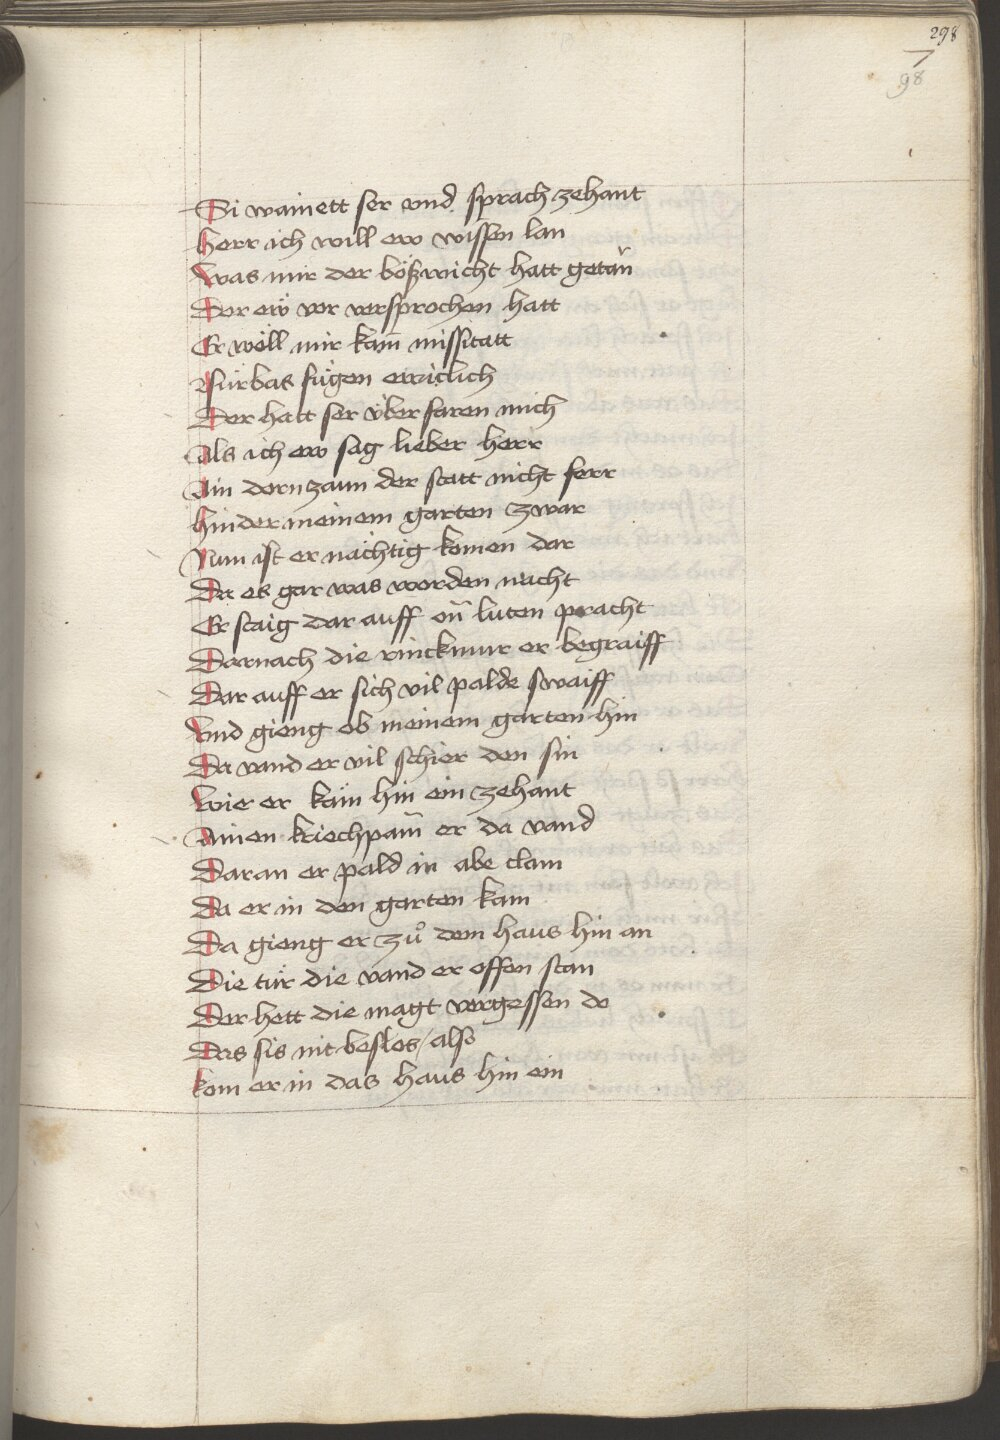 298
98
Si wainett ser vnd sprach zehant
Herr ich will ew wissen lan
Was mir der bößwicht hatt getan
Der ew vor versprochen hatt
Er wöll mir kain missitatt
Fürbas fügen
Der hatt ser über faren mich
Als ich ew sag lieber herr
Ain dornzaun der statt nicht ferr
Hinder meinem garten zwar
Nun ist er nächtig komen dar
Da es gar was worden nacht
Er staig dar auff on luten pracht
Darnach die rinckmur er begraiff
Dar auff er sich vil palde swaiff
Vnd gieng ob meinem garten hin
Da vand er vil schier den sin
Wie er käm hin ein zehant
Ainen kriechpam̄ er da vand
Daran er pald in abe clam
Da er in den garten kam
Da gieng er zuͦ dem haus hin an
Die tür die vand er offen stan
Der hett die magt vergessen do
Das sis nit beslos / also
Kom er in das haus hin ein